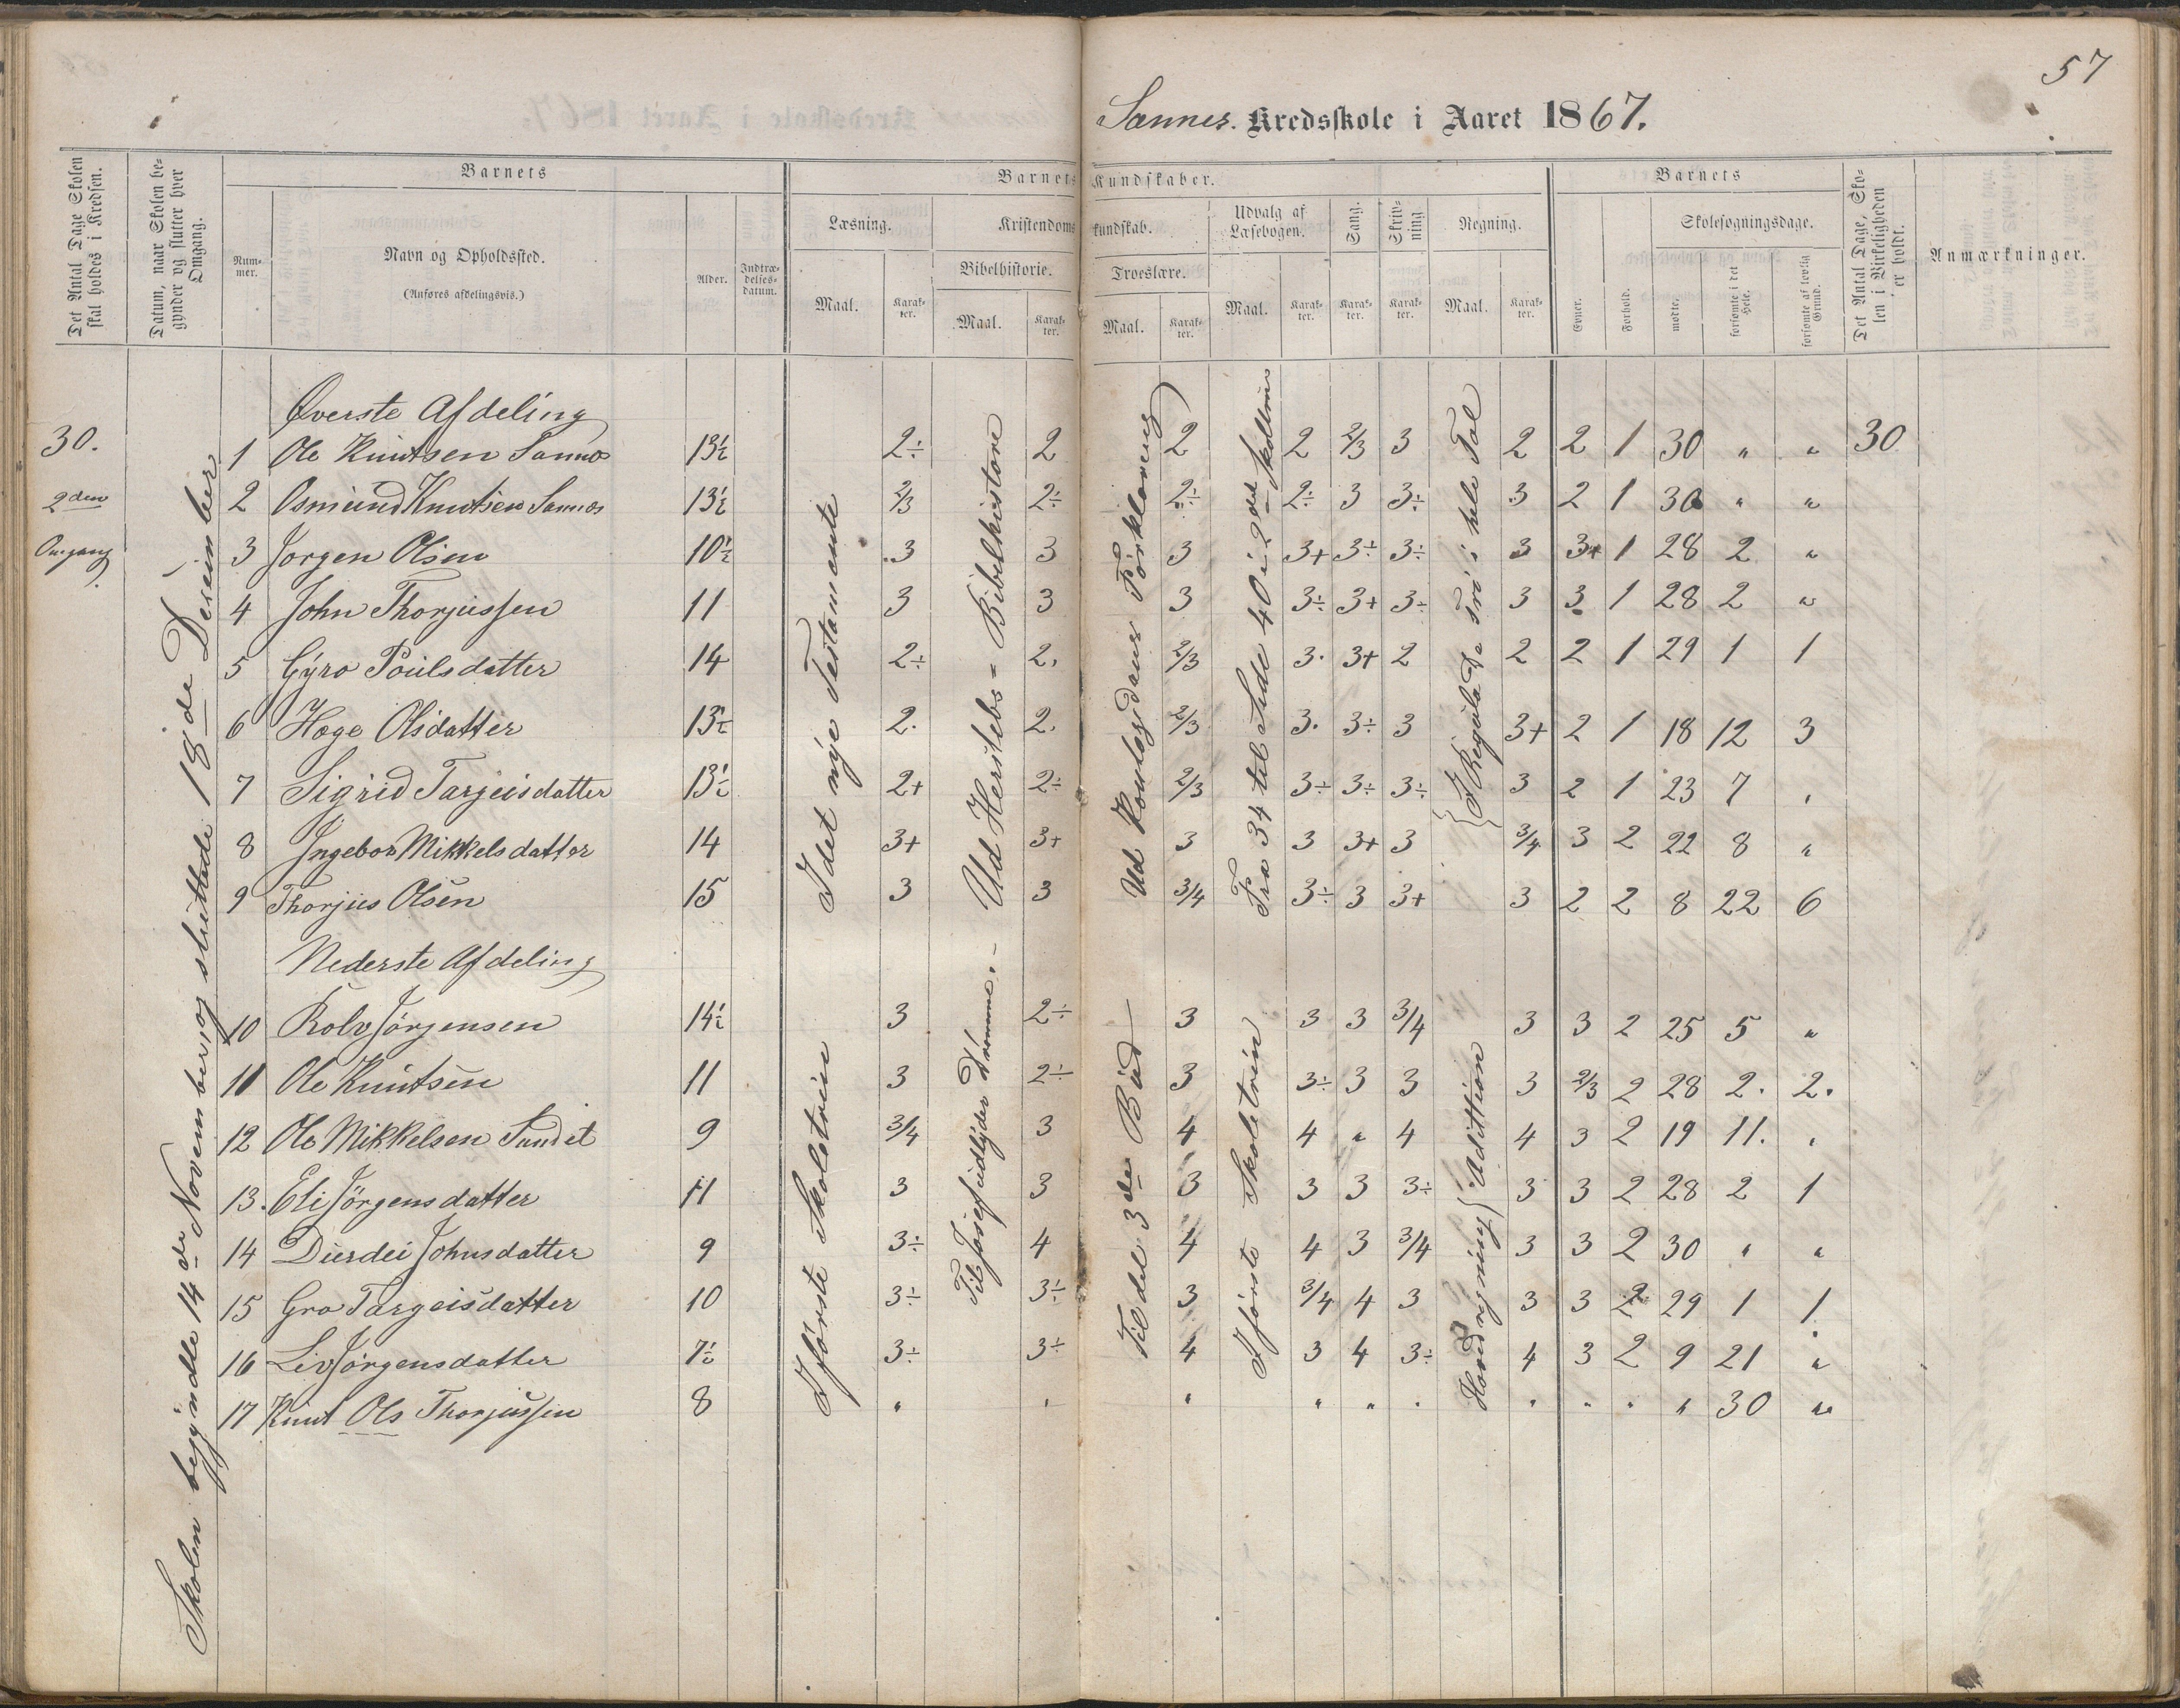 57
Sannes. Kredsskole i Aaret 1867.
Det Antal Dage Skolen skal holdes i Kredsen.
Datum, naar Skolen begynder og slutter hver Omgang.
Barnets
Nummer.
Navn og Opholdssted.
(Anføres afdelingsvis.)
Alder.
Indtrædelses-datum.
Barnets Kundskaber.
Læsning.
Maal.
Karakter.
Kristendomskundskab.
Bibelhistorie.
Maal.
Karakter.
Troeslære.
Maal.
Karakter.
Udvalg af Læsebogen.
Maal.
Karakter.
Sang.
Karakter.
Skrivning
Karakter.
Regning.
Maal.
Karakter.
Barnets
Evner.
Forhold.
Skolesøgningsdage.
mødte.
forsømte i det Hele.
forsømte af lovlig Grund.
Det Antal Dage, Skolen i Virkeligheden er holdt.
Anmærkninger.
30.
2den
Omgang
Skolen begyndte 14de November, og sluttede 18de Desember
Øverste Afdeling
I det nye Testamente
Ud Herslebs Bibelhistorie
Ud Pontoppidans Forklaring
Fra 34 til Side 40 i 2det Skoletrin
I Regula De Tri i hele Tal
1 Ole Knutsen Sannes 13½ 2÷ 2 2 2 2/3 3 2 2 1 30 " " 30
2 Osmund Knutsen Sannes 13½ 2/3 2÷ 2÷ 2÷ 3 3÷ 3 2 1 30 " "
3 Jorgen Olsen 10½ 3 3 3 3+ 3÷ 3÷ 3 3+ 1 28 2 "
4 John Thorjussen 11 3 3 3 3÷ 3+ 3÷ 3 3 1 28 2 "
5 Gyro Poulsdatter 14 2÷ 2. 2/3 3. 3+ 2 2 2 1 29 1 1
6 Hæge Olsdatter 13½ 2. 2. 2/3 3. 3÷ 3 3+ 2 1 18 12 3
7 Sigrid Tarjeisdatter 13½ 2+ 2÷ 2/3 3÷ 3÷ 3÷ 3 2 1 23 7 "
8 Ingebor Mikkelsdatter 14 3+ 3+ 3 3 3+ 3 3/4 3 2 22 8 "
9 Thorjus Olsen 15 3 3 3/4 3÷ 3 3+ 3 2 2 8 22 6
Nederste Afdeling
I første Skoletrin
Til Josef udtyder Drømme.
Til det 3de Bud
I første Skoletrin
Hovedregning Adittion
10 Rolv Jörgensen 14½ 3 2÷ 3 3 3 3/4 3 3 2 25 5 "
11 Ole Knutsen 11 3 2÷ 3 3÷ 3 3 3 2/3 2 28 2. 2.
12 Ole Mikkelsen Sundet 9 3/4 3 4 4 " 4 4 3 2 19 11. "
13. Eli Jörgensdatter 11 3 3 3 3 3 3÷ 3 3 2 28 2 1
14 Durdei Johnsdatter 9 3÷ 4 4 4 3 3/4 3 3 2 30 " "
15 Gro Targeisdatter 10 3÷ 3÷ 3 3/4 4 3 3 3 2 29 1 1
16 Liv Jörgensdatter 7½ 3÷ 3÷ 4 3 4 3÷ 4 3 2 9 21 "
17 Knut Ols Thorjussen 8 " " " " " " " " " " 30 "